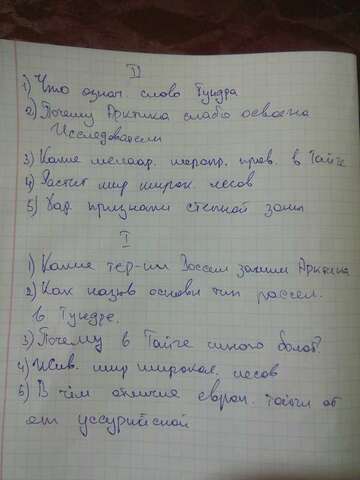 II
1) Что означ. слово Тундра
2) Почему Арктика слабо освоена
Исследователи
3) Какие мелиор. меропр. пров. в Тайге
4) Растит мир широк. лесов
5) Хар. признаки степной зоны
I
1) Какие тер-ии России заним Арктика
2) Как назыв основн тип рассел.
в Тундре.
3) Почему в Тайге много болот?
4) Жив. мир широкол. лесов
5) В чём отличие европ. тайги от
уссурийской